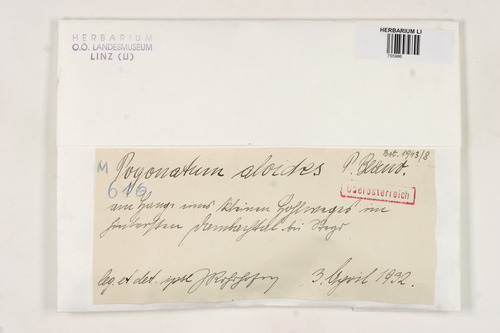 HERBARIUM
O.Ö. LANDESMUSEUM
LINZ (LI)
HERBARIUM LI
Bot. 1943/8
M Pogonatum aloides P. Beauv.
616
Oberösterreich
am Hange eines kleinen Hohlweges im
hintersten Dambachtal bei Steyr
leg. et det. 3. April 1932.